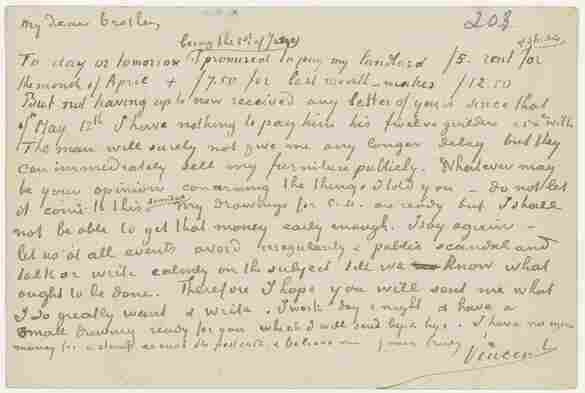 My dear brother, 208
being the 1st of June
To day or tomorrow I promised to pay my landlord f5. rent for
the month of April + f7.50 for last month – makes f12.50
But not having up to now received any letter of yours since that
of May 12th I have nothing to pay him his twelve guilders with
The man will surely not give me any longer delay but they
can immediately sell my furniture publicly. Whatever may
be your opinion concerning the things I told you – do not let
it come to this scandal my drawings for C.M. are ready but I shall
not be able to get that money early enough. I say again –
let us at all events avoid irregularity & public scandal and
talk or write calmly on the subject till we know what
ought to be done. Therefore I hope you will send me what
I so greatly want & write. I work day & night & have a
small drawing ready for you which I will send by & bye. I have no more
money for a stamp excuse the postcard & believe me yours truly
Vincent